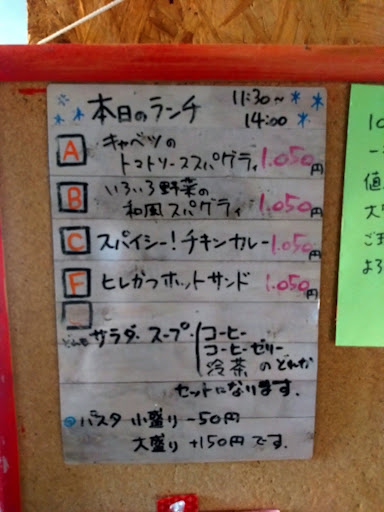 本日のランチ 11:30~
14:00
A キャベツの
トマトソーススパゲティ 1.050円
B いろいろ野菜の
和風スパゲティ 1.050円
C スパイシー!チキンカレー 1.050円
F ヒレかつホットサンド 1.050円
どれも サラダ・スープ・コーヒー
コーヒーゼリー
冷茶 のどれか
セットになります。
パスタ 小盛り -50円
大盛り +150円です。
10
一
値
大
ご
よろ